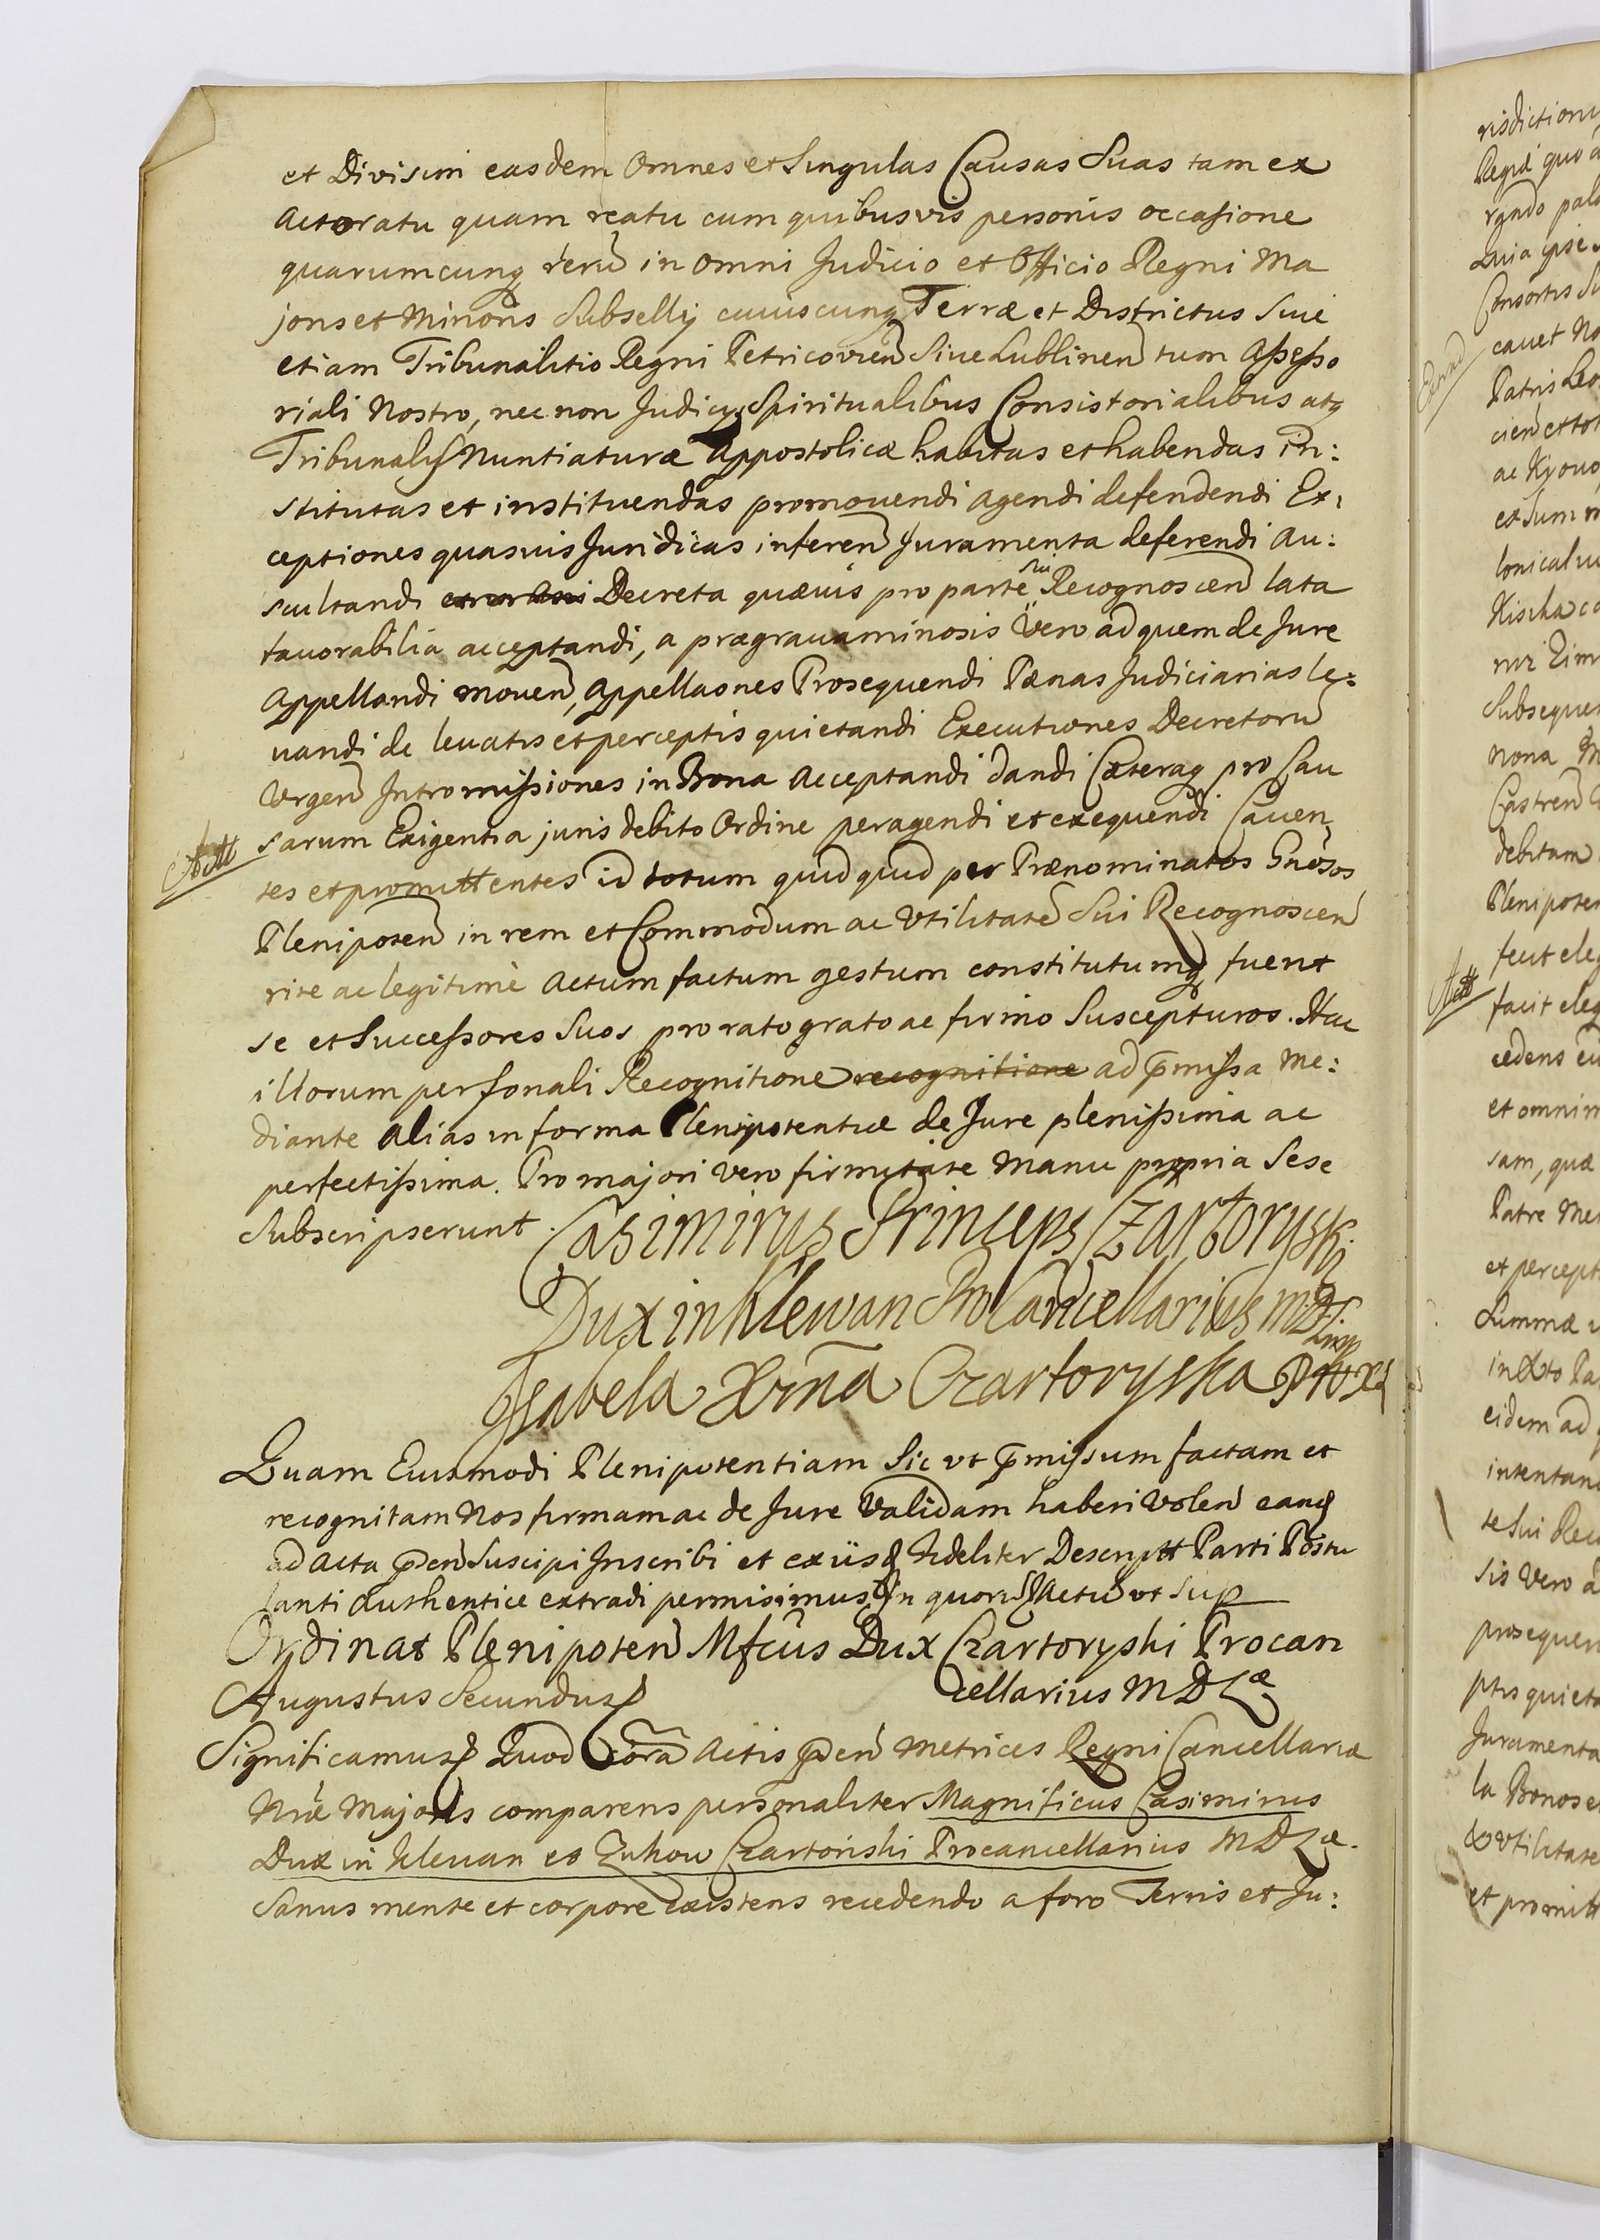 et Divisim easdem Omnes et Singulas Causas Suas tam ex
Actoratu quam reatu cum quibusvis personis occasione
quarumcunq rerū in omni Judicio et Officio Regni Ma
joris et Minoris Subsellij cuiuscunq Terræ et Districtus Siue
etiam Tribunalitio Regni Petricovien Siue Lublinen tum Assesso
riali Nostro, nec non Judicijs Spiritualibus Consistorialibus atq
Tribunalis Nuntiaturæ Appostolicæ habitas et habendas in:
stitutas et instituendas promouendi agendi defendendi Ex:
ceptiones quasuis Juridicas inferen Juramenta deferendi Au:
scultandi Decreta quæuis pro parte sui Recognoscen lata
fauorabilia acceptandi, a prægrauaminosis Vero ad quem de Jure
Appellandi mouen, Appellaones Prosequendi Pænas Judiciarias le:
uandi de leuatis et perceptis quietandi Executiones Decretorū
Vrgen Intromissiones in Bona Acceptandi dandi Cæteraq pro Cau
sarum Exigentia juris debito Ordine peragendi et exequendi Cauen,
tes et promittentes id totum quidquid per Prænominatos Gnosos
Plenipoten in rem et Commodum ac Vtilitatē Sui Recognoscen
rite ac legitimè Actum factum gestum constitutumq fuerit
se et Successores Suos pro rato grato ac firmo Suscepturos. Hac
illorum personali Recognitione recognitione ad pmissa Me:
diante alias in forma Plenipotentiæ de Jure plenissima ac
perfectissima. Pro majori Vero firmitate Manu propria Sese
Subscripserunt. Casimirus Princeps Czartoryski
Dux in Klewan ProCancellarius M D Lit
Isabela Xżna Czartoryska
Quam Eiusmodi Plenipotentiam Sic vt pmissum factam et
recognitam Nos firmam ac de Jure Validam haberi Volen eanq
ad Acta pden Suscipi Inscribi et ex iisd Fideliter Descriptt Parti Postu
lanti Authentice extradi permisimus In quorū Actū vt Sup
Ordinat Plenipoten Mfcus Dux Czartoryski Procan
Augustus Secundus cellarius M D Læ
Significamus Quod Corā Actis pden Metrices Regni Cancellariæ
Nræ Majoris comparens personaliter Magnificus Casimirus
Dux in Klewan et Zukow Czartoriski Procancellarius M D Læ.
Sanus mente et corpore existens recedendo a foro Terris et Ju: